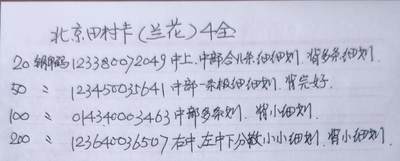 北京田村卡(兰花)4全
20 钢脚码 123380072049 中上.中部合几条细细划.背多条细划.
50 〃 123450035641 中部一条极细细划.背完好.
100 〃 014340003463 中部多条划.背小细划.
200 〃 123640036507 右中.左中下分散小小细划.背小细划.